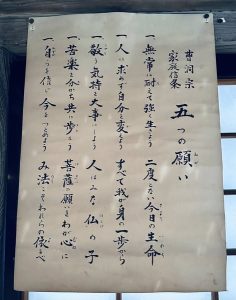 曹洞宗
家庭信条
五つの願い
一、無常に耐えて強く生きよう 二度とない今日の生命
一、人に求めず自分を変えよう すべて我が身の一歩から
一、敬う気持を大事にしよう 人はみな仏の子
一、苦楽を分かち共に歩もう 菩薩の願をわが心に
一、自らを信じ今をつとめよう み法こそわれらの